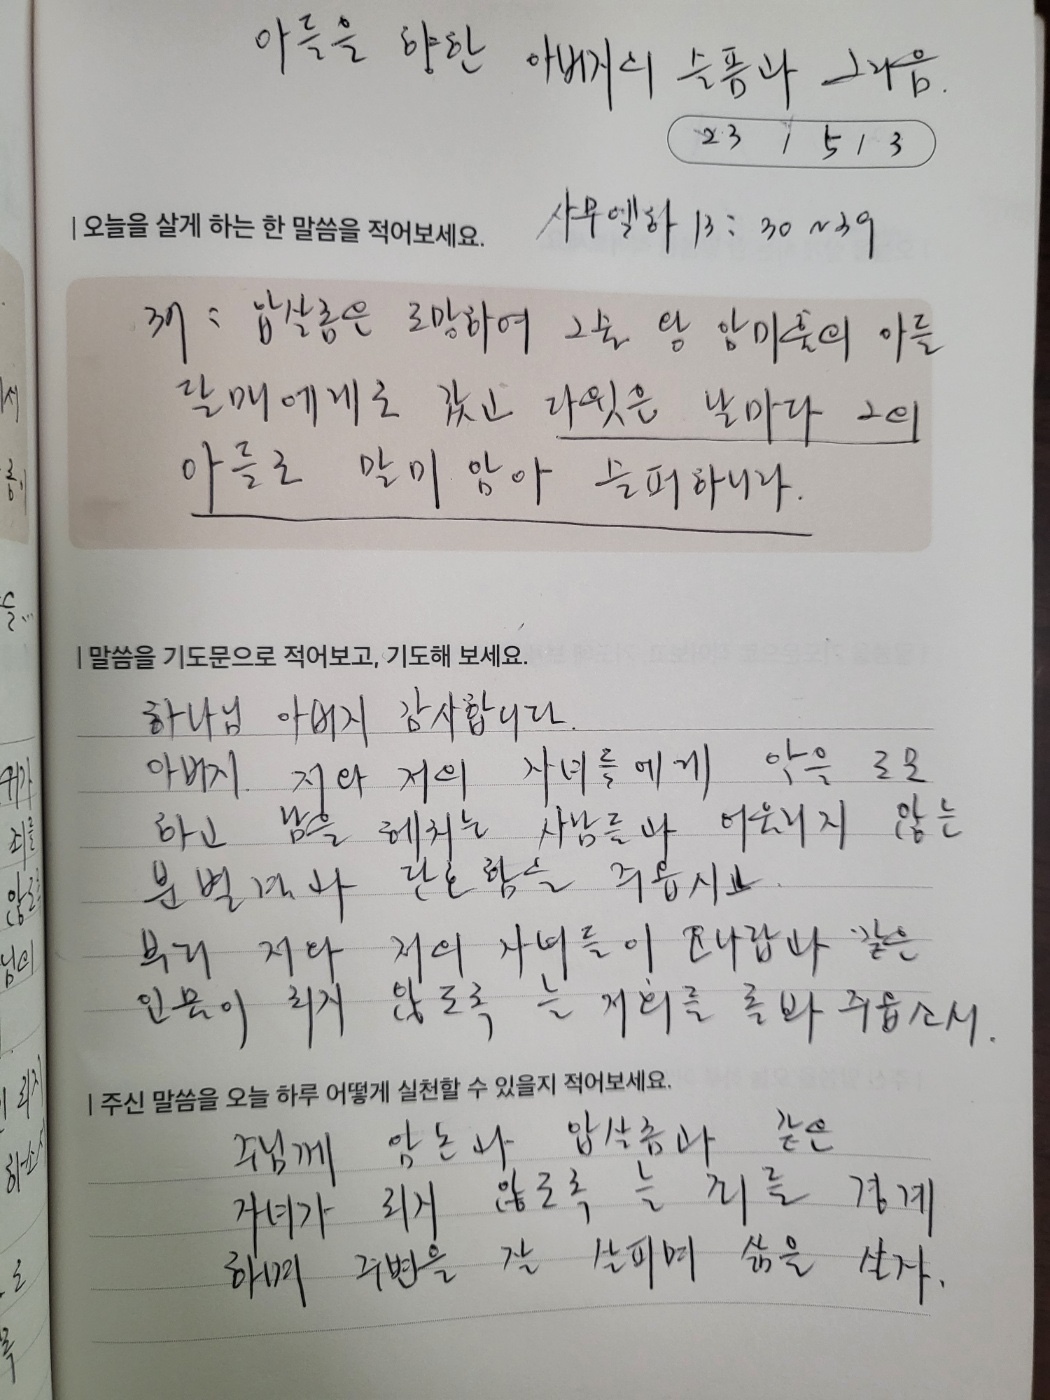 아들을 향한 아버지의 슬픔과 그리움.
23 / 5 / 3
| 오늘을 살게 하는 한 말씀을 적어보세요.
사무엘하 13 : 30 ~ 39
37 : 압살롬은 도망하여 그술 왕 암미훌의 아들
달매에게로 갔고 다윗은 날마다 그의
아들로 말미암아 슬퍼하니라.
| 말씀을 기도문으로 적어보고, 기도해 보세요.
하나님 아버지 감사합니다.
아버지. 저와 저의 자녀들에게 악을 도모
하고 남을 헤치는 사람들과 어울리지 않는
분별력과 단호함을 주옵시고.
부디 저와 저의 자녀들이 요나답과 같은
인물이 되지 않도록 늘 저희를 돌봐 주옵소서.
| 주신 말씀을 오늘 하루 어떻게 실천할 수 있을지 적어보세요.
주님께 암논과 압살롬과 같은
자녀가 되지 않도록 늘 죄를 경계
하며 주변을 잘 살피며 삶을 살자.